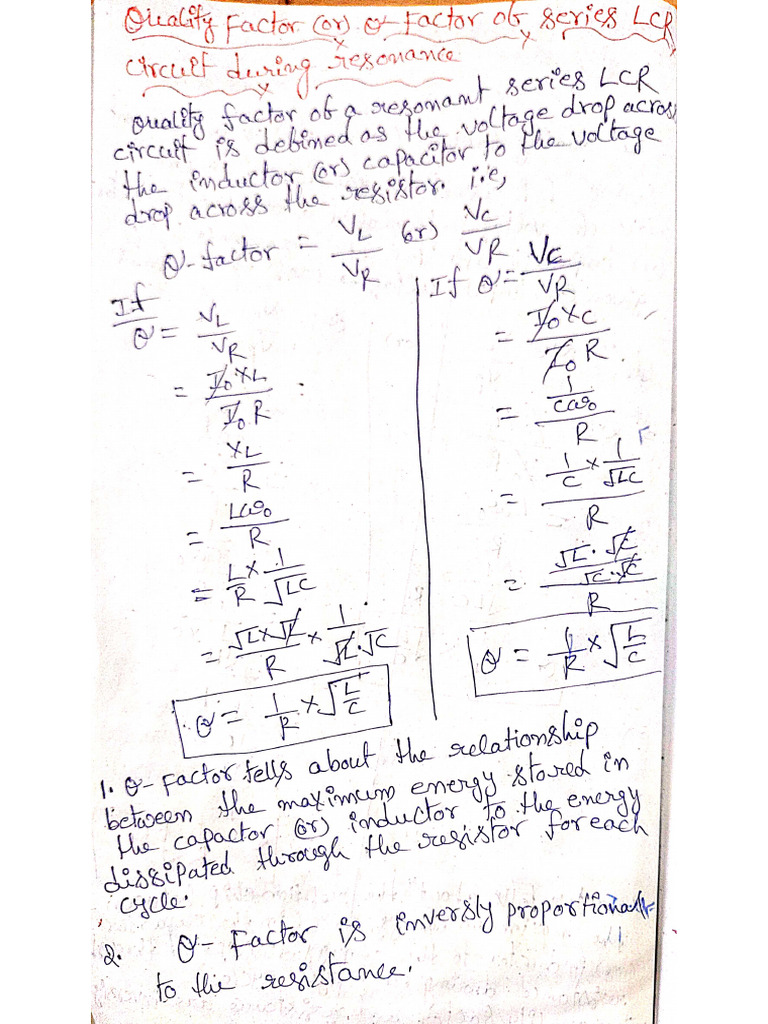 Quality Factor (or) Q-Factor of series LCR
circuit during resonance
Quality factor of a resonant series LCR
circuit is defined as the voltage drop across
the inductor (or) capacitor to the voltage
drop across the resistor. i.e,
Q-factor = V_L/V_R (or) V_C/V_R
If
Q = V_L/V_R
= I_0 X_L / I_0 R
= X_L / R
= Lω_0 / R
= L/R × 1/√LC
= √L×√L / R × 1/√L.√C
Q = 1/R × √L/C
If Q = V_C/V_R
= I_0 X_C / I_0 R
= 1/Cω_0 / R
= 1/C × 1/√LC / R
Q = 1/R × √L/C
1. Q-Factor tells about the relationship
between the maximum energy stored in
the capactor (or) inductor to the energy
dissipated through the resistor for each
cycle.
2. Q-Factor is inversly proportional
to the resistance.